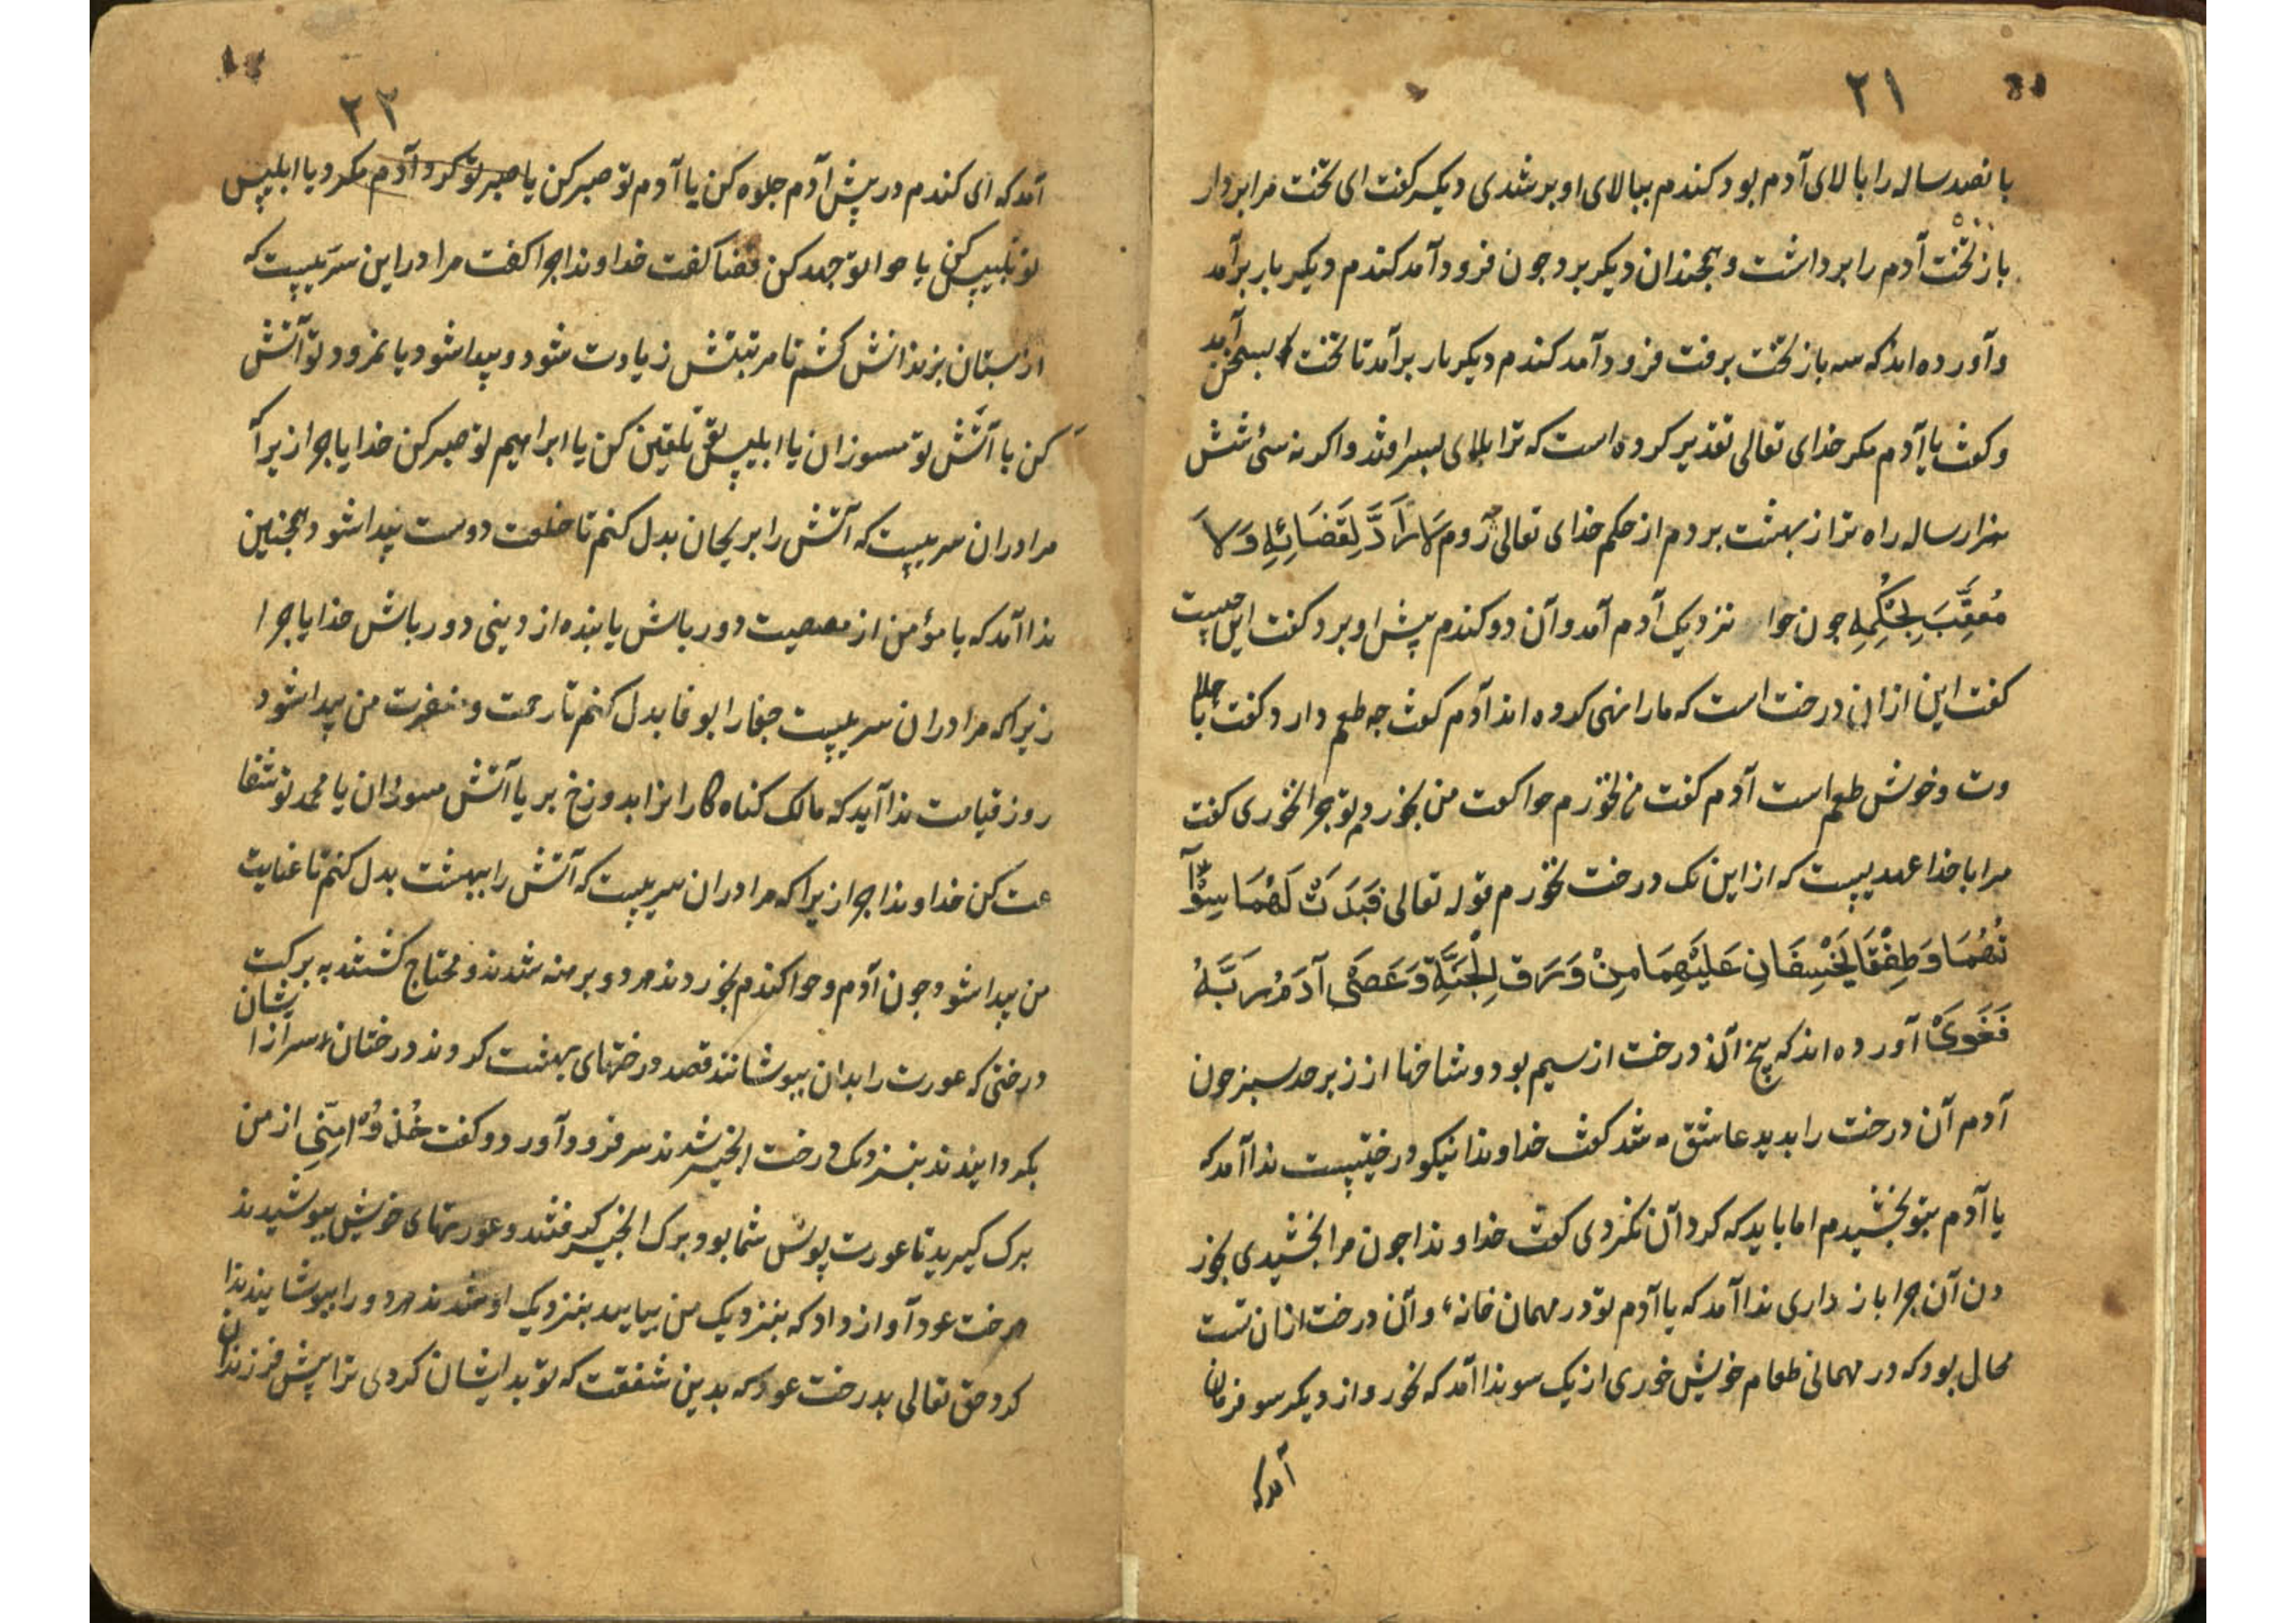 ۲۱
بانصد ساله را بالای آدم بود کندم ببالای او بر شدی دیکر کفت ای تخت مرا بردار
باز تخت آدم را برداشت و همجندان دیکر برد جون فرود آمد کندم دیکر بار برآمد
و آورده اند که سه باز تخت برفت فرود آمد کندم دیکر بار برآمد تا تخت بسخن آمد
و کفت یا آدم مکر خدای تعالی تقدیر کرده است که ترا بلای بسر افتد و اکر نه سی شش
هزار ساله راه ترا از بهشت بردم از حکم خدای تعالی لَا رَادَّ لِقَضَائِهِ وَلَا
مُعَقِّبَ لِحُكْمِهِ جون حوا نزدیک آدم آمد و آن دو کندم پیش او برد کفت این چیست
کفت این از ان درخت است که مارا نهی کرده اند آدم کفت جه طعم دارد کفت با حلا
وت و خوش طعم است آدم کفت من نخورم حوا کفت من بخوردم تو جرا نخوری کفت
مرا با خدا عهدیست که از این نک درخت نخورم قوله تعالی فَبَدَتْ لَهُمَا سَوْآ
تُهُمَا وَطَفِقَا يَخْصِفَانِ عَلَيْهِمَا مِنْ وَرَقِ الْجَنَّةِ وَعَصَى آدَمُ رَبَّهُ
فَغَوَىٰ آورده اند که بیخ آن درخت از سیم بود و شاخها از زبرجد سبز جون
آدم آن درخت را بدید عاشق شد کفت خداوندا نیکو درختیست ندا آمد که
یا آدم بتو بخشیدم اما باید که کرد آن نکردی کفت خداوندا جون مرا بخشیدی بخور
دن آن جرا باز داری ندا آمد که یا آدم تو در مهمان خانهٔ و آن درخت از ان تست
محال بود که در مهمانی طعام خویش خوری از یک سو ندا آمد که نخور و از دیکر سو فرمان
آمد که
۲۲
آمد که ای کندم در پیش آدم جلوه کن یا آدم تو صبر کن یا صبر تو کرد آدم مکرد یا ابلیس
تو تلبیس کن یا حوا تو جهد کن قضا کفت خداوندا جرا کفت مرا در این سریست که
از بستان بزندانش کشم تا مرتبتش زیادت شود و پیدا شود یا نمرود تو آتش
کن یا آتش تو مسوزان یا ابلیس تلقین کن یا ابراهیم تو صبر کن خدایا جرا زیرا که
مرا در ان سریست که آتش را بریحان بدل کنم تا خلعت دوست پیدا شود و همجنین
ندا آمد که یا مؤمن از معصیت دور باش یا بنده از دینی دور باش خدایا جرا
زیرا که مرا در ان سریست جفا را بوفا بدل کنم تا رحمت و مغفرت من پیدا شود
روز قیامت ندا آید که مالک کناه کارانرا بدوزخ بر یا آتش مسوزان یا محمد تو شفا
عت کن خداوندا جرا زیرا که مرا در ان سریست که آتش را ببهشت بدل کنم تا عنایت
من پیدا شود جون آدم و حوا کندم بخوردند هر دو برهنه شدند و محتاج کشتند به برکت
درختی که عورت را بدان بپوشانند قصد درختهای بهشت کردند درختان سر از ایشان
بکردانیدند بنزدیک درخت انجیر شدند سر فرود آورد و کفت خُذُوْا مِنِّي از من
برک کیرید تا عورت پوش شما بود برک انجیر کرفتند و عورتهای خویش بپوشیدند
درخت عود آواز داد که بنزدیک من بیایید بنزدیک او شدند هر دو را بپوشانید ندا
کرد حق تعالی بدرخت عود که بدین شفقت که تو بدایشان کردی ترا پیش فرزندان